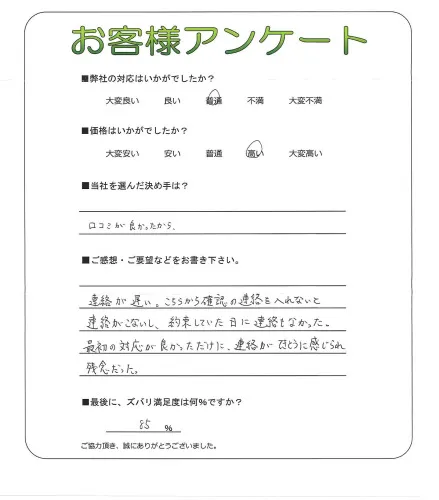 お客様アンケート
■弊社の対応はいかがでしたか？
大変良い 良い 普通 不満 大変不満
■価格はいかがでしたか？
大変安い 安い 普通 高い 大変高い
■当社を選んだ決め手は？
口コミが良かったから、
■ご感想・ご要望などをお書き下さい。
連絡が遅い。こちらから確認の連絡を入れないと
連絡がこないし、約束していた日に連絡もなかった。
最初の対応が良かっただけに、連絡が 感じられ
残念だった。
■最後に、ズバリ満足度は何%ですか？
85 %
ご協力頂き、誠にありがとうございました。